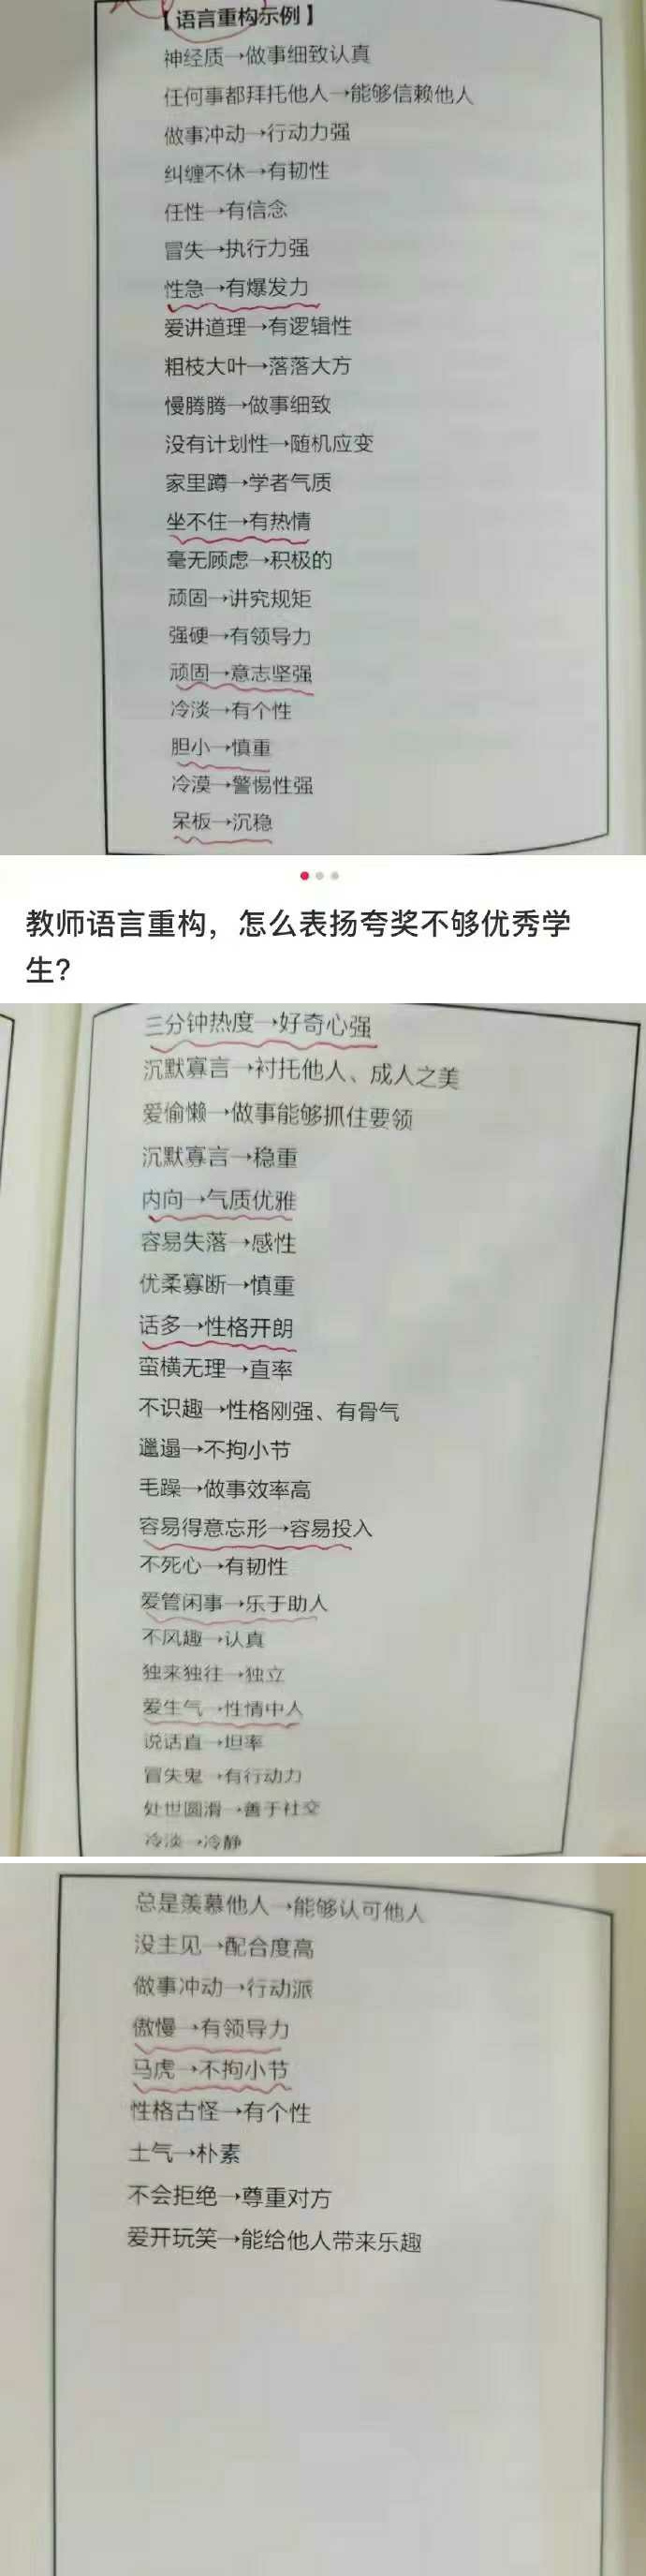 【语言重构示例】
神经质→做事细致认真
任何事都拜托他人→能够信赖他人
做事冲动→行动力强
纠缠不休→有韧性
任性→有信念
冒失→执行力强
性急→有爆发力
爱讲道理→有逻辑性
粗枝大叶→落落大方
慢腾腾→做事细致
没有计划性→随机应变
家里蹲→学者气质
坐不住→有热情
毫无顾虑→积极的
顽固→讲究规矩
强硬→有领导力
顽固→意志坚强
冷淡→有个性
胆小→慎重
冷漠→警惕性强
呆板→沉稳
教师语言重构，怎么表扬夸奖不够优秀学
生?
三分钟热度→好奇心强
沉默寡言→衬托他人、成人之美
爱偷懒→做事能够抓住要领
沉默寡言→稳重
内向→气质优雅
容易失落→感性
优柔寡断→慎重
话多→性格开朗
蛮横无理→直率
不识趣→性格刚强、有骨气
邋遢→不拘小节
毛躁→做事效率高
容易得意忘形→容易投入
不死心→有韧性
爱管闲事→乐于助人
不风趣→认真
独来独往→独立
爱生气→性情中人
说话直→坦率
冒失鬼→有行动力
处世圆滑→善于社交
冷淡→冷静
总是羡慕他人→能够认可他人
没主见→配合度高
做事冲动→行动派
傲慢→有领导力
马虎→不拘小节
性格古怪→有个性
土气→朴素
不会拒绝→尊重对方
爱开玩笑→能给他人带来乐趣